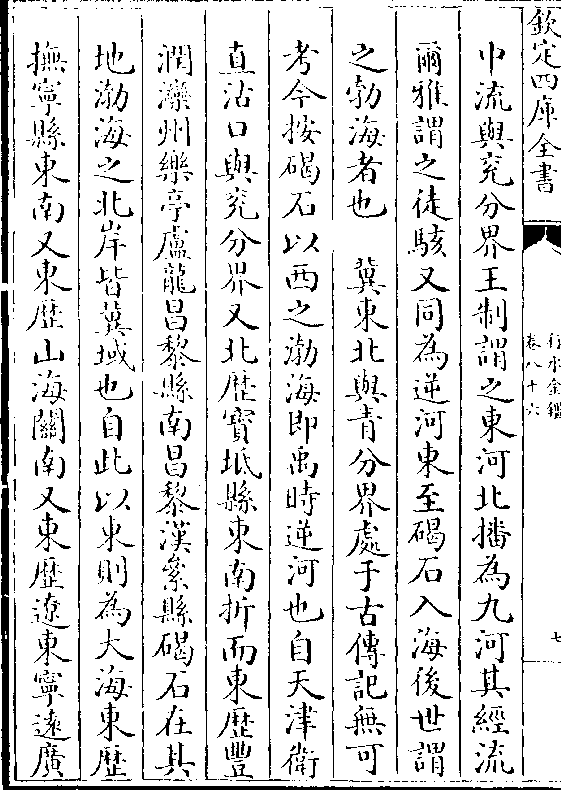 欽定四庫全書
行水金鑑
卷八十六
七
中流與兖分界王制謂之東河北播為九河其經流
爾雅謂之徒駭又同為逆河東至碣石入海後世謂
之勃海者也　冀東北與青分界處于古傳記無可
考今按碣石以西之渤海即禹時逆河也自天津衛
直沽口與兖分界又北歴寳坻縣東南折而東歴豐
潤灤州樂亭盧龍昌黎縣南昌黎漢絫縣碣石在其
地渤海之北岸皆冀域也自此以東則為大海東歴
撫寧縣東南又東歴山海關南又東歴遼東寧逺廣